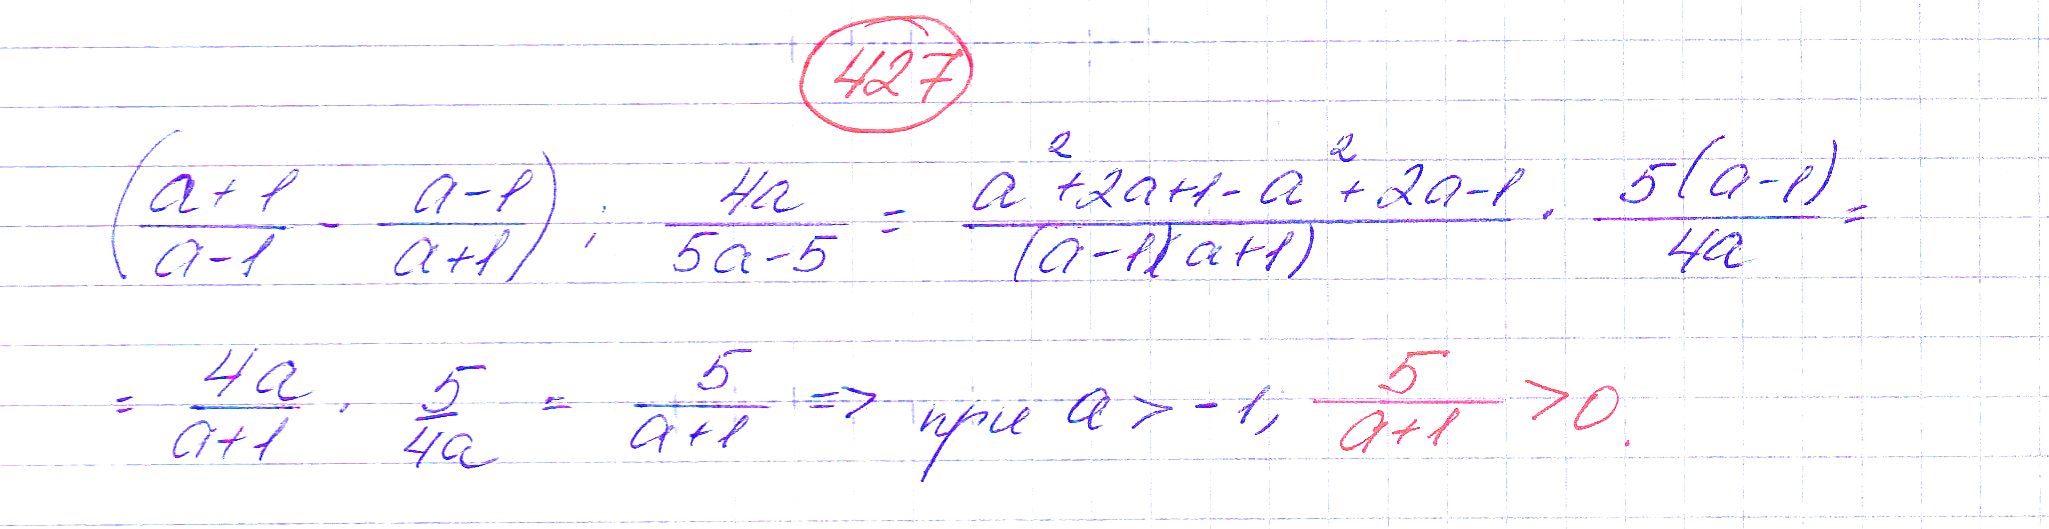 427
((a+1)/(a-1) - (a-1)/(a+1)) : 4a/(5a-5) = (a²+2a+1-a²+2a-1)/((a-1)(a+1)) · 5(a-1)/4a =
= 4a/(a+1) · 5/4a = 5/(a+1) => при a > -1, 5/(a+1) > 0.